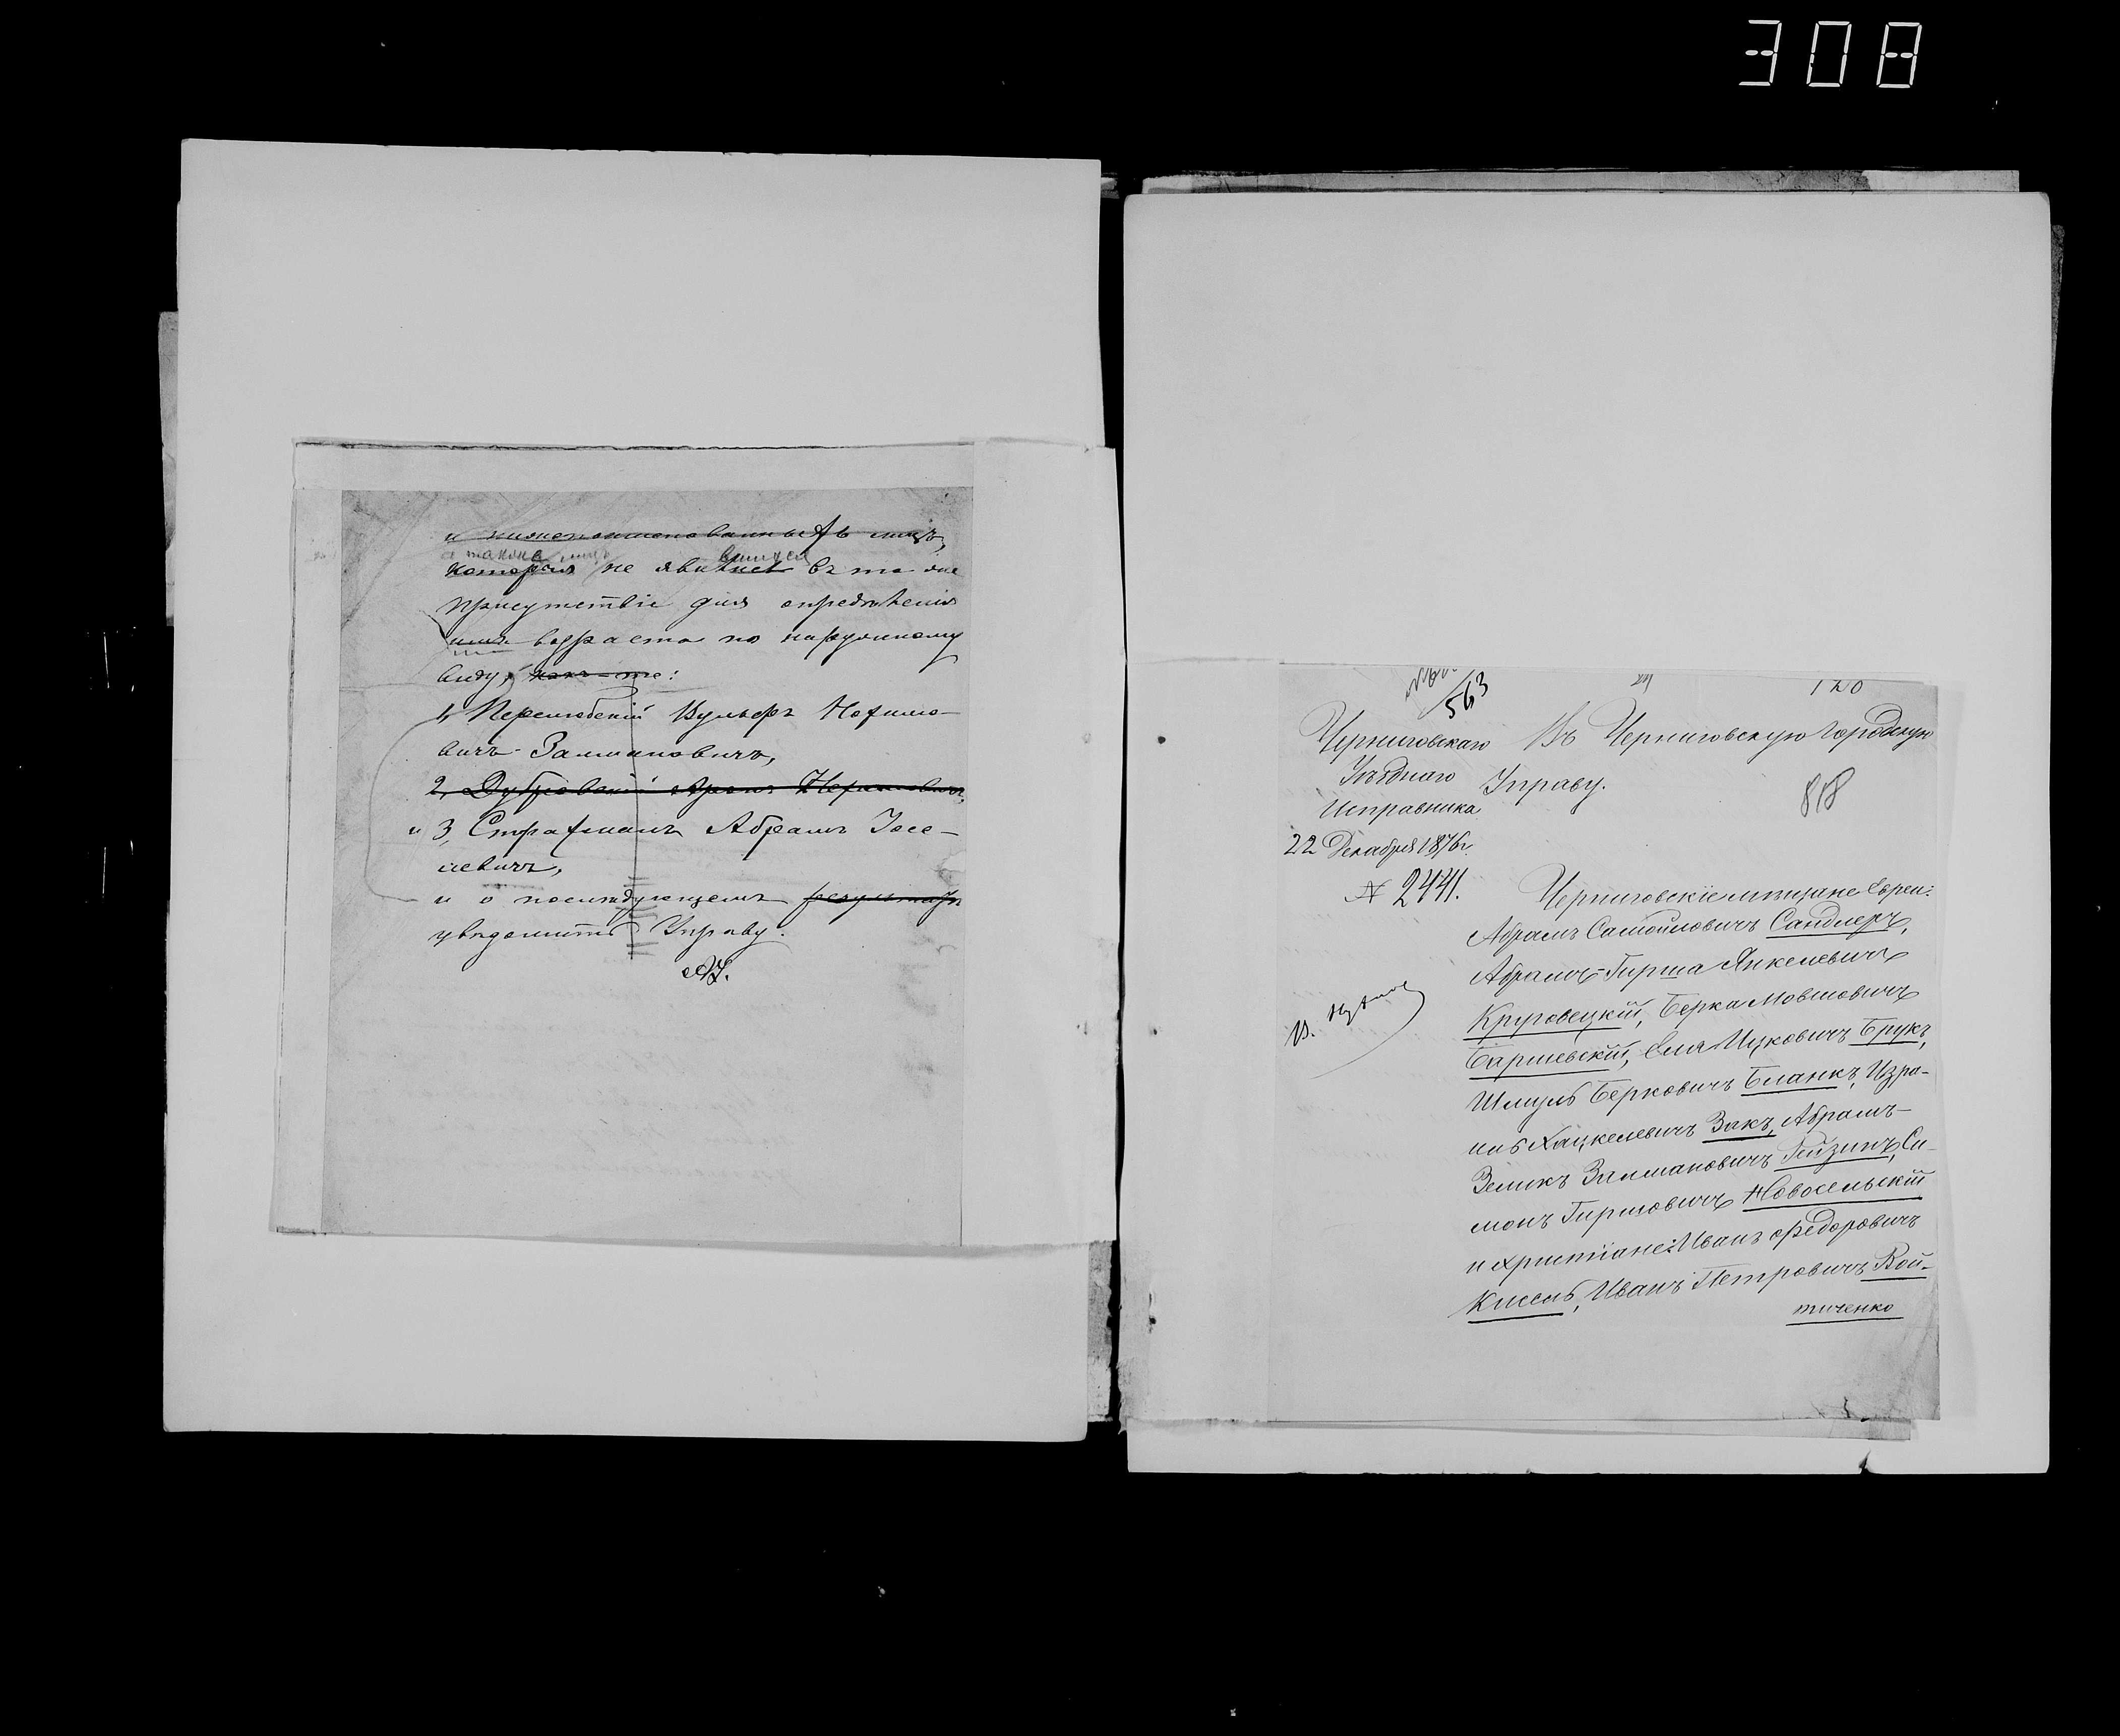 308
и нижепоименованныхъ лицъ,
а также лицъ
которыя не явились въ то же
присутствіе для опредѣленія
ихъ возраста по наружному
виду, какъ-то:
1, Перелюбскій Вульфъ Нохимо-
вичъ Залмановичъ,
2, Дубровскій
и 3, Страхманъ Абрамъ Іосе-
левичъ,
и о послѣдующемъ
увѣдомить Управу.
563
120
Черниговскаго
Уѣзднаго
Исправника
22 Декабря 1876 г.
№ 2441.
Въ Черниговскую Городскую
Управу.
818
Черниговскіе мѣщане Евреи:
Абрамъ Самойловичъ Сандлеръ,
Абрамъ-Гирша Янкелевичъ
Круговецкій, Берка Мовшовичъ
Баршевскій, Еля Ицковичъ Брукъ,
Шмуль Берковичъ Бланкъ, Изра-
иль Хацкелевичъ Закъ, Абрамъ-
Зеликъ Залмановичъ Гейзинъ, Си-
монъ Гиршовичъ Новосельскій
и христіане: Иванъ Федоровичъ
Кисель, Иванъ Петровичъ Вой-
тиченко